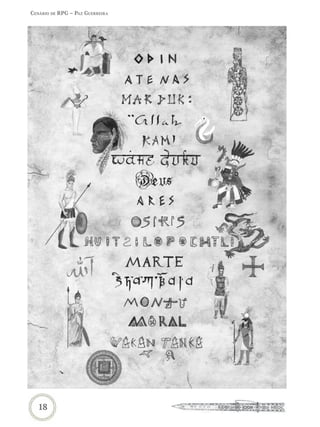 Cenário de RPG – Paz Guerreira
ODIN
ATENAS
MARDUK:
"Allah
KAMI
Deus
ARES
OSIRIS
HUITZILOPOCHTLI
MARTE
MONTU
WAKAN TANKA
18